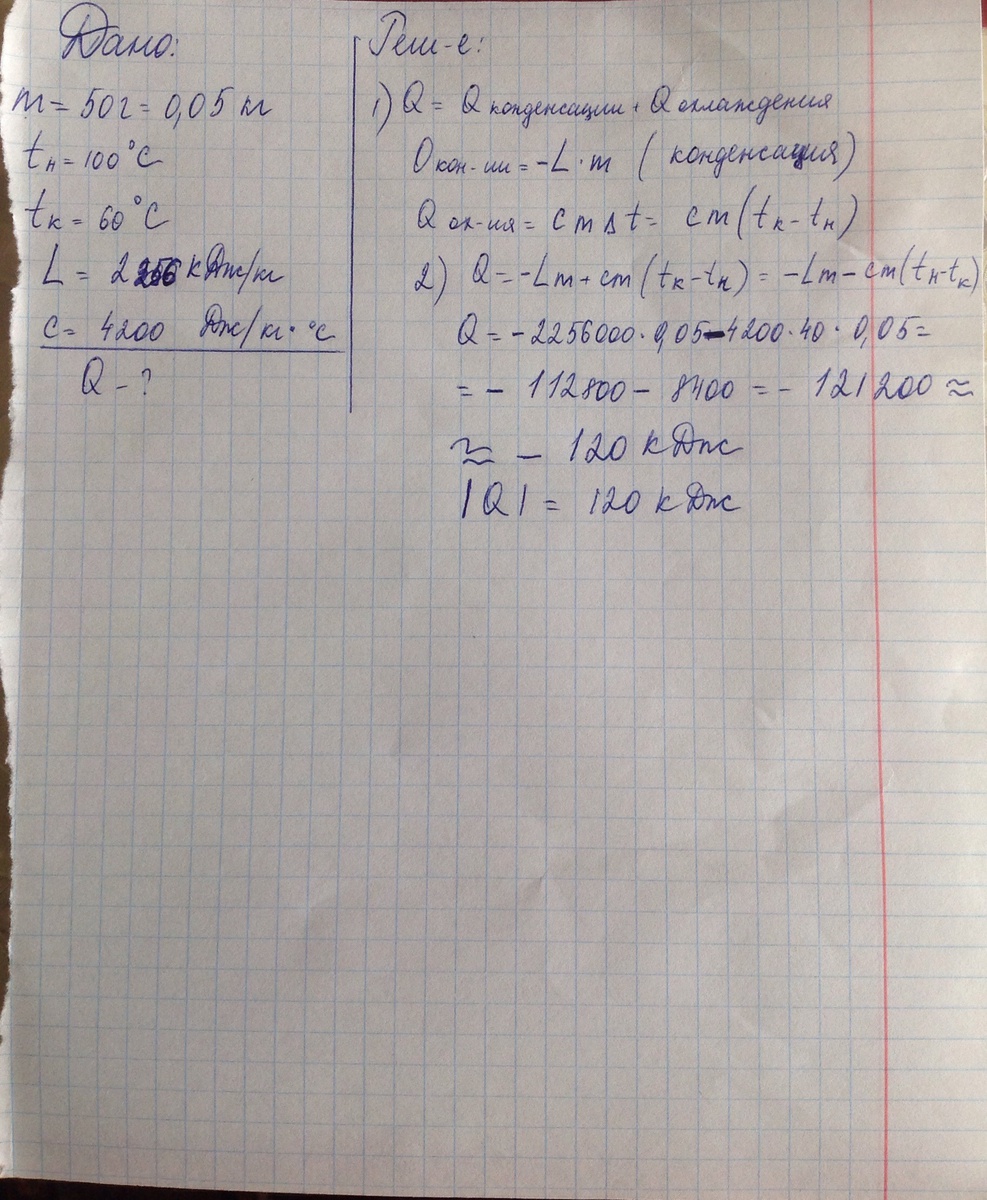 Дано:
m = 50 г = 0,05 кг
tн = 100 °C
tк = 60 °C
L = 2256 кДж/кг
c = 4200 Дж/кг · °C
Q - ?
Реш-е:
1) Q = Q конденсации + Q охлаждения
Q кон-ии = -L · m ( конденсация)
Q ох-ия = cm Δt = cm (tк - tн)
2) Q = -Lm + cm (tк - tн) = -Lm - cm(tн-tк)
Q = - 2256000 · 0,05 - 4200 · 40 · 0,05 =
= - 112800 - 8400 = - 121200 ≈
≈ - 120 кДж
|Q| = 120 кДж